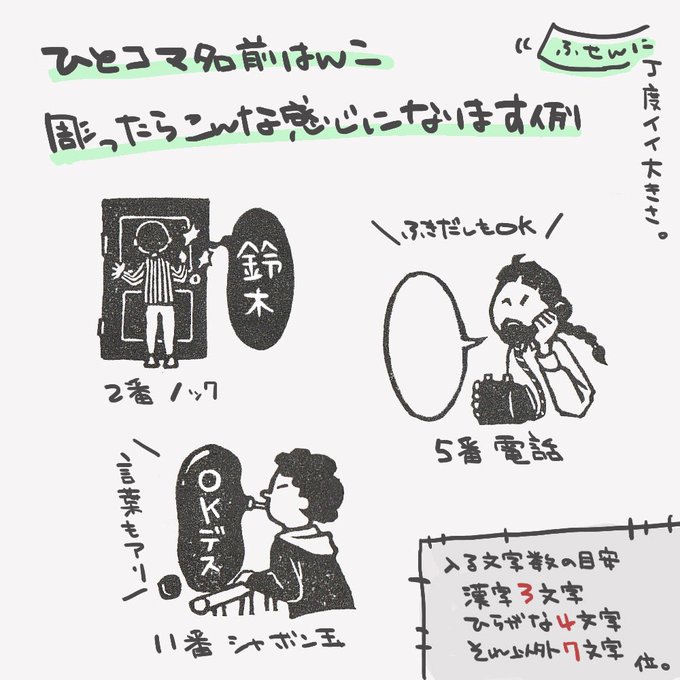 ひとコマ名前はんこ
彫ったらこんな感じになります例
ふせんに
丁度イイ大きさ。
鈴木
2番 ノック
ふきだしもOK
5番 電話
言葉もアリ
OKデス
11番 シャボン玉
入る文字数の目安
漢字3文字
ひらがな4文字
それ以外7文字 位。